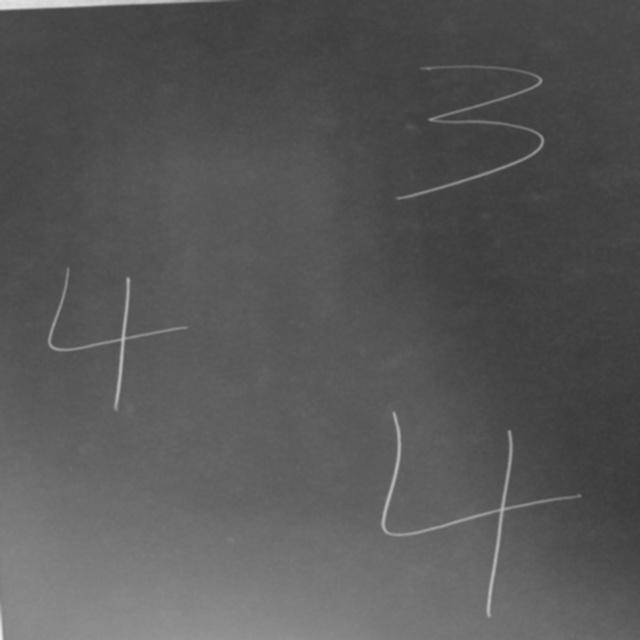 3
4
4